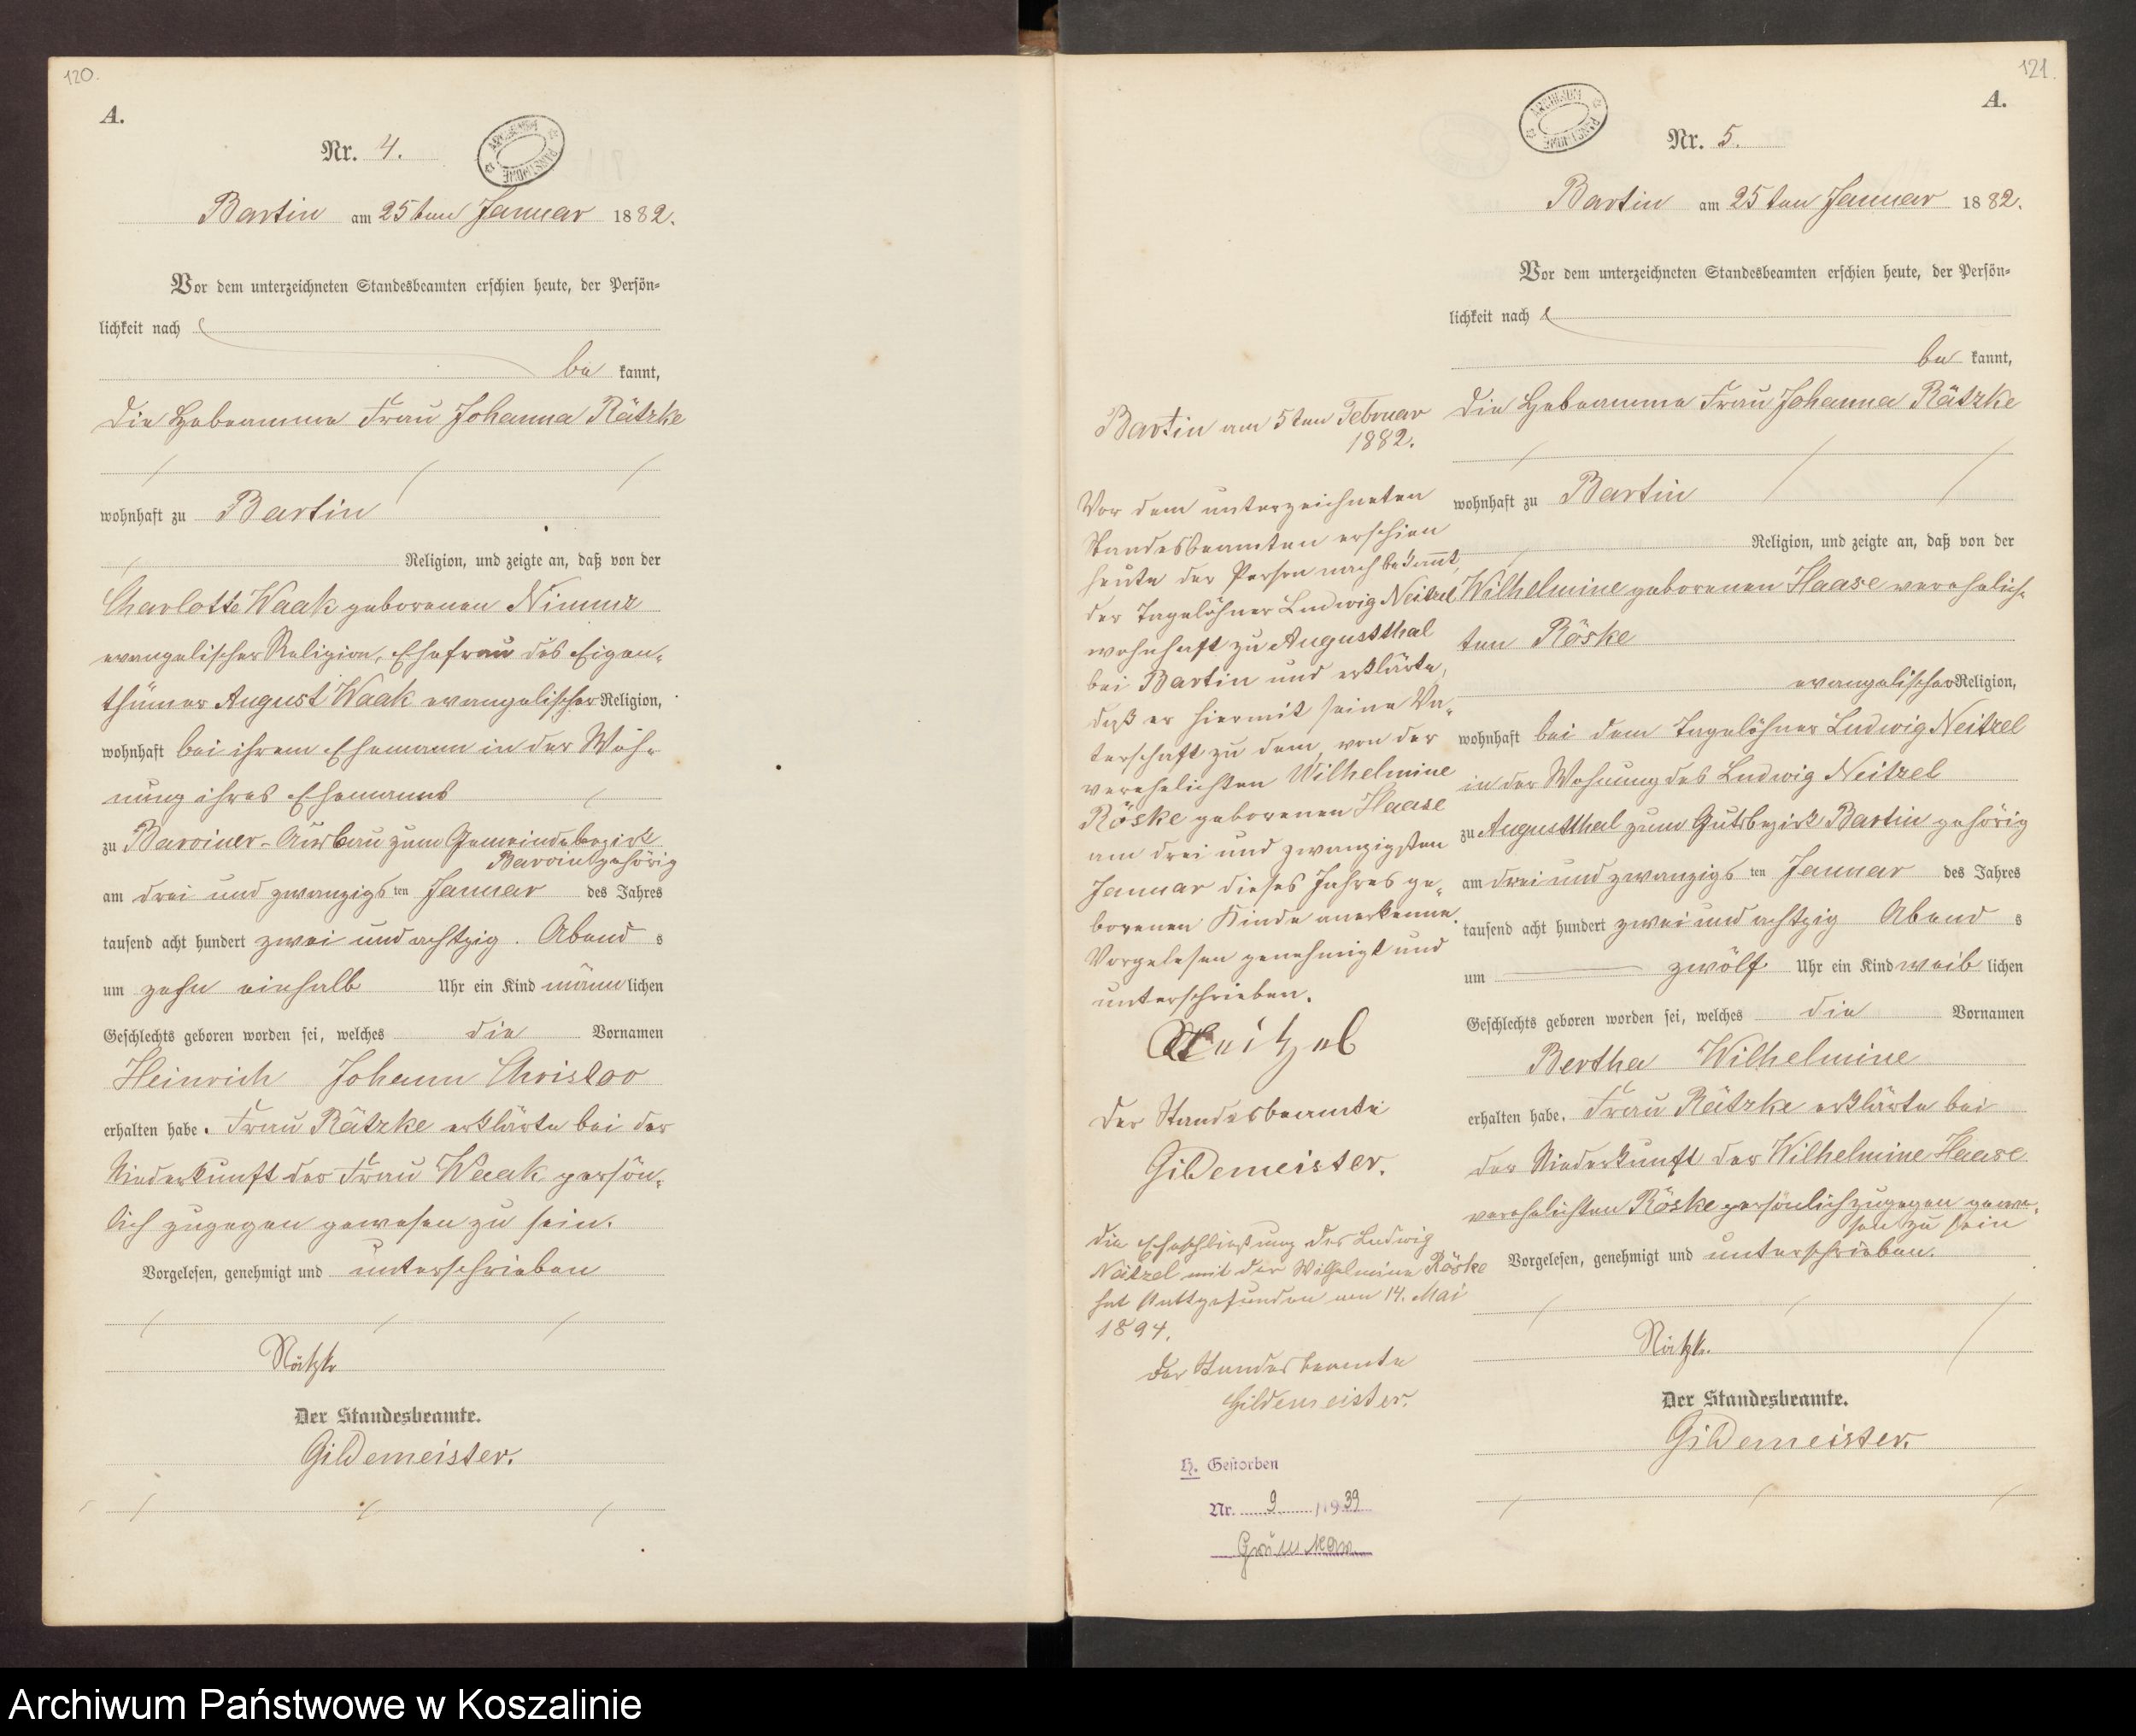 120.
A.
Nr. 4.
ARCHIWUM PAŃSTWOWE
Bartin am 25ten Januar 1882.
Vor dem unterzeichneten Standesbeamten erschien heute, der Persön=
lichkeit nach
be kannt,
die Hebeamme Frau Johanna Rätzke
wohnhaft zu Bartin
Religion, und zeigte an, daß von der
Charlotte Waak geborenen Nimmz
evangelischer Religion, Ehefrau des Eigen-
thümer August Waak evangelischer Religion,
wohnhaft bei ihrem Ehemann in der Woh-
nung ihres Ehemanns
zu Barviner-Ausbau zum Gemeindebezirk
Barvin gehörig
am drei und zwanzigs ten Januar des Jahres
tausend acht hundert zwei und achtzig Abend s
um zehn einhalb Uhr ein Kind männ lichen
Geschlechts geboren worden sei, welches die Vornamen
Heinrich Johann
erhalten habe. Frau Rätzke erklärte bei der
Niederkunft der Frau Waak persön-
lich zugegen gewesen zu sein.
Vorgelesen, genehmigt und unterschrieben
Rätzke
Der Standesbeamte.
Gildemeister.
121.
A.
ARCHIWUM PAŃSTWOWE
Nr. 5.
Bartin am 25ten Januar 1882.
Vor dem unterzeichneten Standesbeamten erschien heute, der Persön=
lichkeit nach
be kannt,
die Hebeamme Frau Johanna Rätzke
wohnhaft zu Bartin
Religion, und zeigte an, daß von der
Wilhelmine geborenen Haase verehelich-
ten Röske
evangelischer Religion,
wohnhaft bei dem Tagelöhner Ludwig Neitzel
in der Wohnung des Ludwig Neitzel
zu Augustthal zum Gutsbezirk Bartin gehörig
am drei und zwanzigs ten Januar des Jahres
tausend acht hundert zwei und achtzig Abend s
um zwölf Uhr ein Kind weib lichen
Geschlechts geboren worden sei, welches die Vornamen
Bertha Wilhelmine
erhalten habe. Frau Rätzke erklärte bei
der Niederkunft der Wilhelmine Haase
verehelichten Röske persönlich zugegen gewe-
sen zu sein
Vorgelesen, genehmigt und unterschrieben.
Rätzke
Der Standesbeamte.
Gildemeister.
Bartin am 5ten Februar
1882.
Vor dem unterzeichneten
Standesbeamten erschien
heute der Person nach bekannt,
der Tagelöhner Ludwig Neitzel
wohnhaft zu Augustthal
bei Bartin und erklärte,
daß er hiermit seine Va-
terschaft zu dem, von der
verehelichten Wilhelmine
Röske geborenen Haase
am drei und zwanzigsten
Januar dieses Jahres ge-
borenen Kinde anerkenne.
Vorgelesen genehmigt und
unterschrieben.
Neitzel
Der Standesbeamte
Gildemeister.
Die Eheschließung des Ludwig
Neitzel mit der Wilhelmine Röske
hat stattgefunden am 14. Mai
1894.
Der Standesbeamte
Gildemeister.
H. Gestorben
Nr. 9 /1939
Grünkow
Archiwum Państwowe w Koszalinie